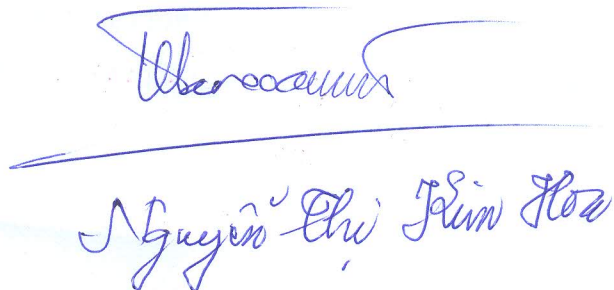 Nguyễn Thị Kim Hoa